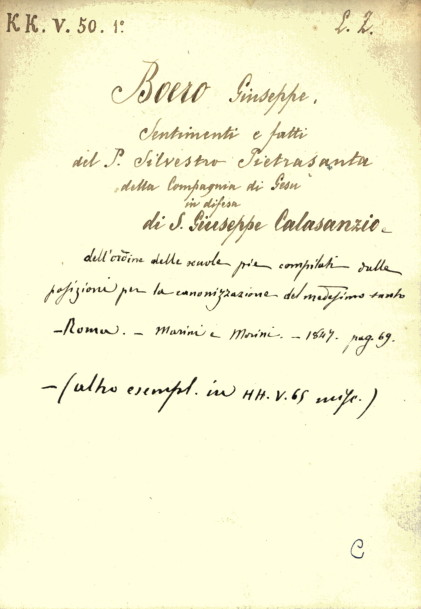 KK. V. 50. 1º
L. Z.
Boero Giuseppe.
Sentimenti e fatti
del P. Silvestro Pietrasanta
della Compagnia di Gesù
in difesa
di S. Giuseppe Calasanzio
dell'ordine delle scuole pie compilati dalle
posizioni per la canonizzazione del medesimo santo
– Roma. – Marini e Morini. – 1847. pag. 69.
– (altro esempl. in HH. V. 65 misc.)
C